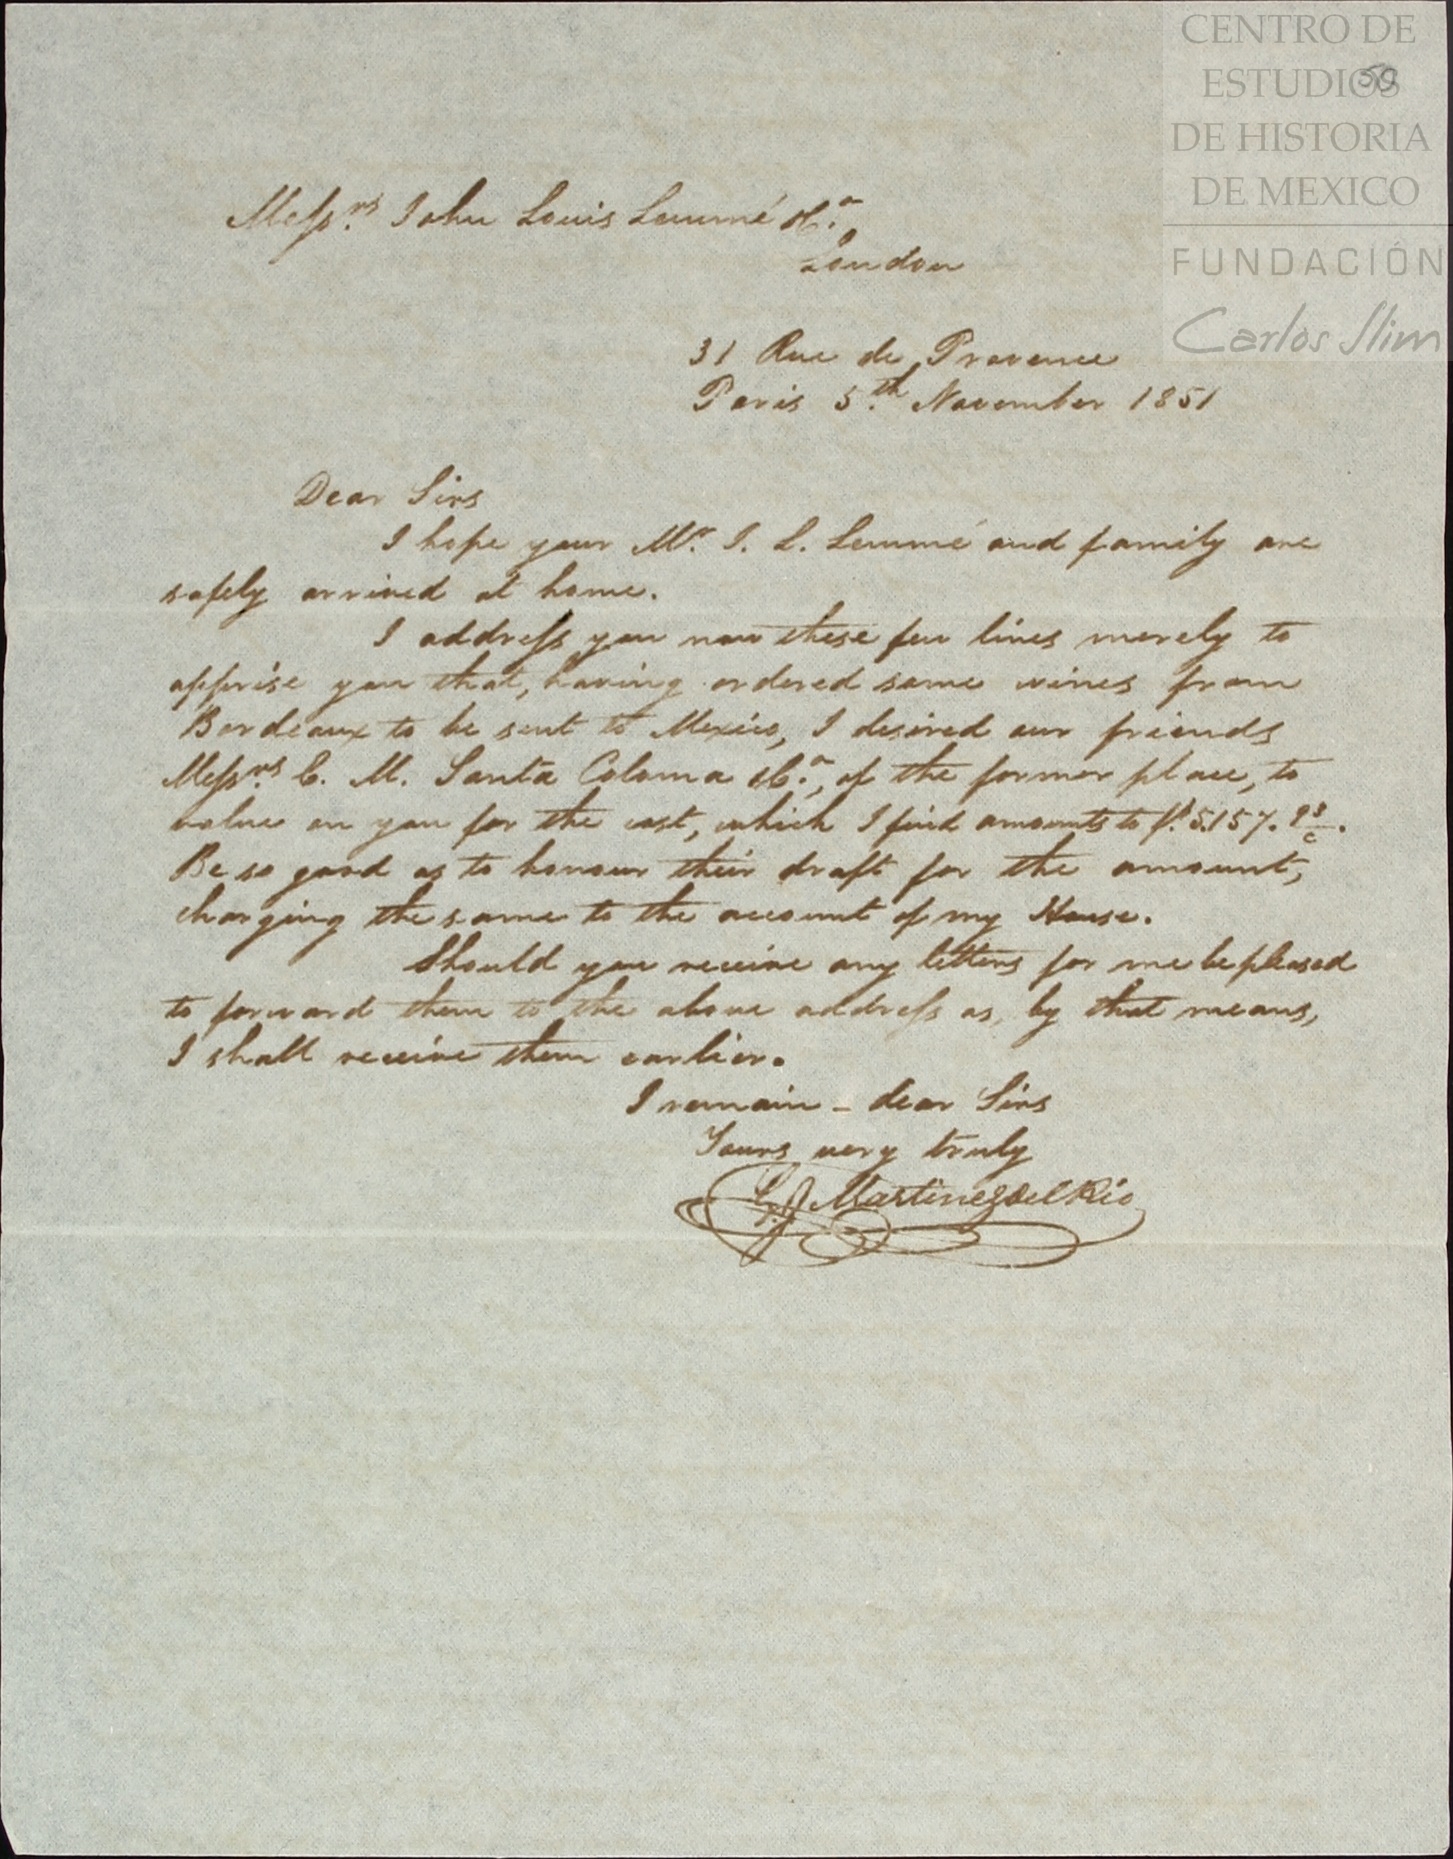 CENTRO DE
ESTUDIOS
DE HISTORIA
DE MEXICO
FUNDACIÓN
Carlos Slim
50
Messrs. John Louis Lemmé &Ca.
London
31 Rue de Provence
Paris 5th. November 1851
Dear Sirs
I hope your Mr. J. L. Lemmé and family are
safely arrived at home.
I address you now these few lines merely to
apprise you that, having ordered some wines from
Bordeaux to be sent to Mexico, I desired our friends
Messrs. C. M. Santa Coloma &Ca., of the former place, to
value on you for the cost, which I find amounts to f. 5.157.
Be so good as to honour their draft for the amount,
charging the same to the account of my House.
Should you receive any letters for me be pleased
to forward them to the above address as, by that means,
I shall receive them earlier.
I remain - dear Sirs
Yours very truly
Martinez del Rio